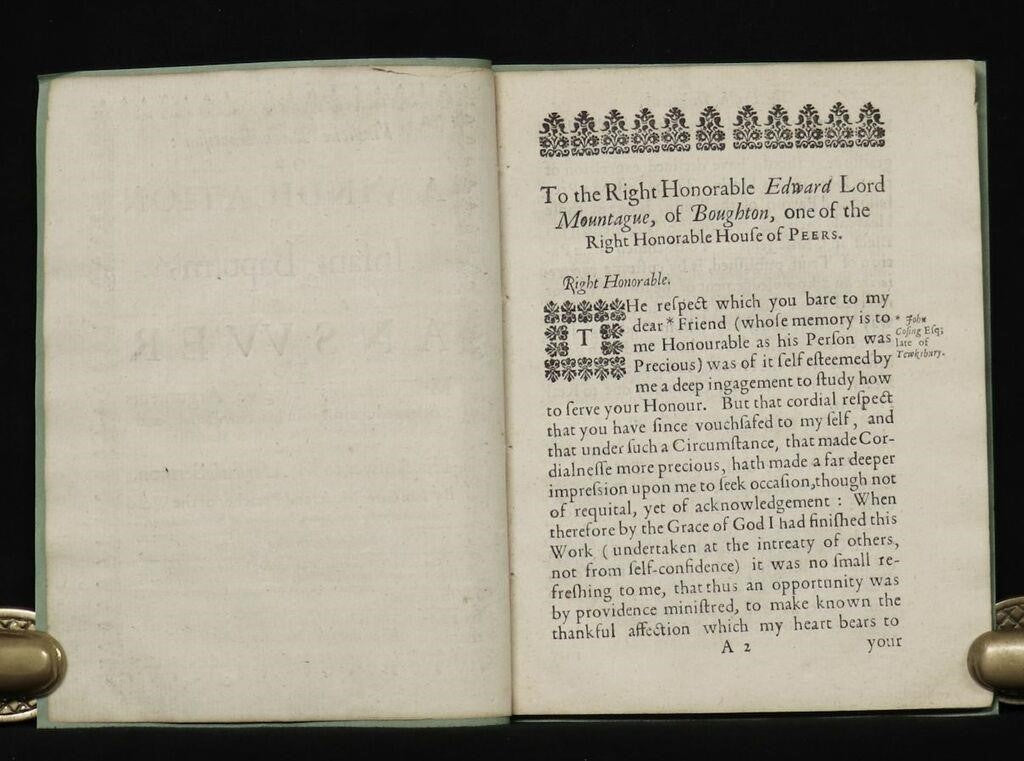 To the Right Honorable Edward Lord
Mountague, of Boughton, one of the
Right Honorable Houſe of PEERS.
Right Honorable.
THe reſpect which you bare to my
dear * Friend (whoſe memory is to
me Honourable as his Perſon was
Precious) was of it ſelf eſteemed by
me a deep ingagement to ſtudy how
to ſerve your Honour. But that cordial reſpect
that you have ſince vouchſafed to my ſelf, and
that under ſuch a Circumſtance, that made Cor-
dialneſſe more precious, hath made a far deeper
impreſsion upon me to ſeek occaſion, though not
of requital, yet of acknowledgement : When
therefore by the Grace of God I had finiſhed this
Work ( undertaken at the intreaty of others,
not from ſelf-confidence) it was no ſmall re-
freſhing to me, that thus an opportunity was
by providence miniſtred, to make known the
thankful affection which my heart bears to
A 2 your
* John
Coſing Eſq;
late of
Tewksbury.